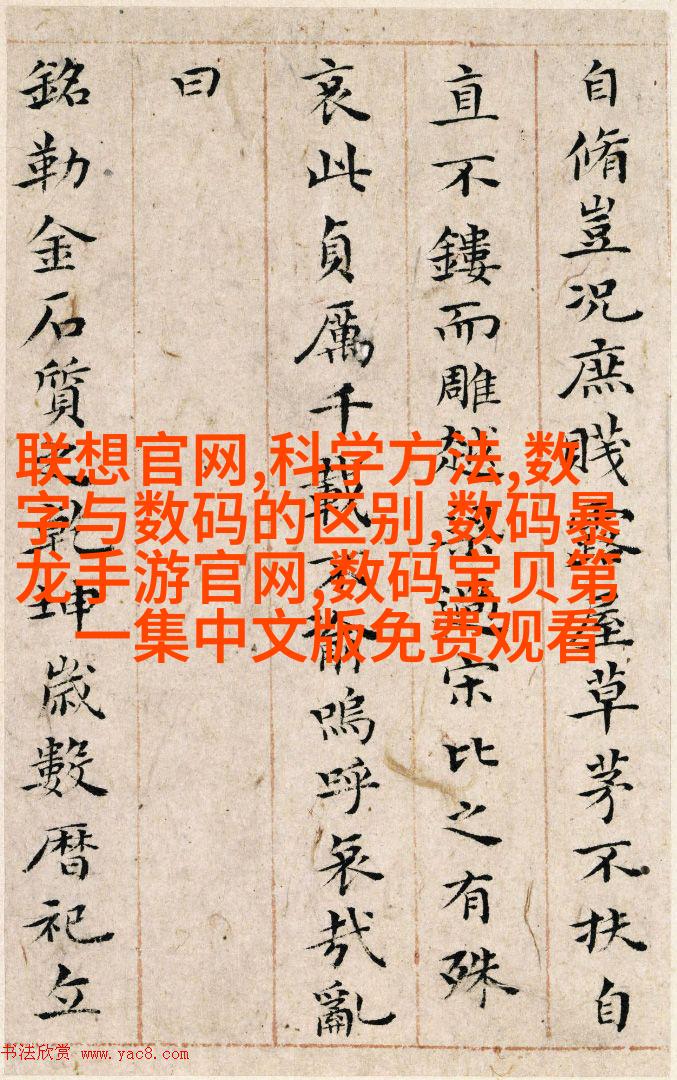 自脩豈況庶賤草茅不扶自
直不鏤而雕宋比之有殊
哀此貞厲千載嗚呼哀哉亂
曰
銘勒金石質乾坤歲數曆祀立
联想官网,科学方法,数
字与数码的区别,数码暴
龙手游官网,数码宝贝第
一集中文版免费观看
书法欣赏 www.yac8.com